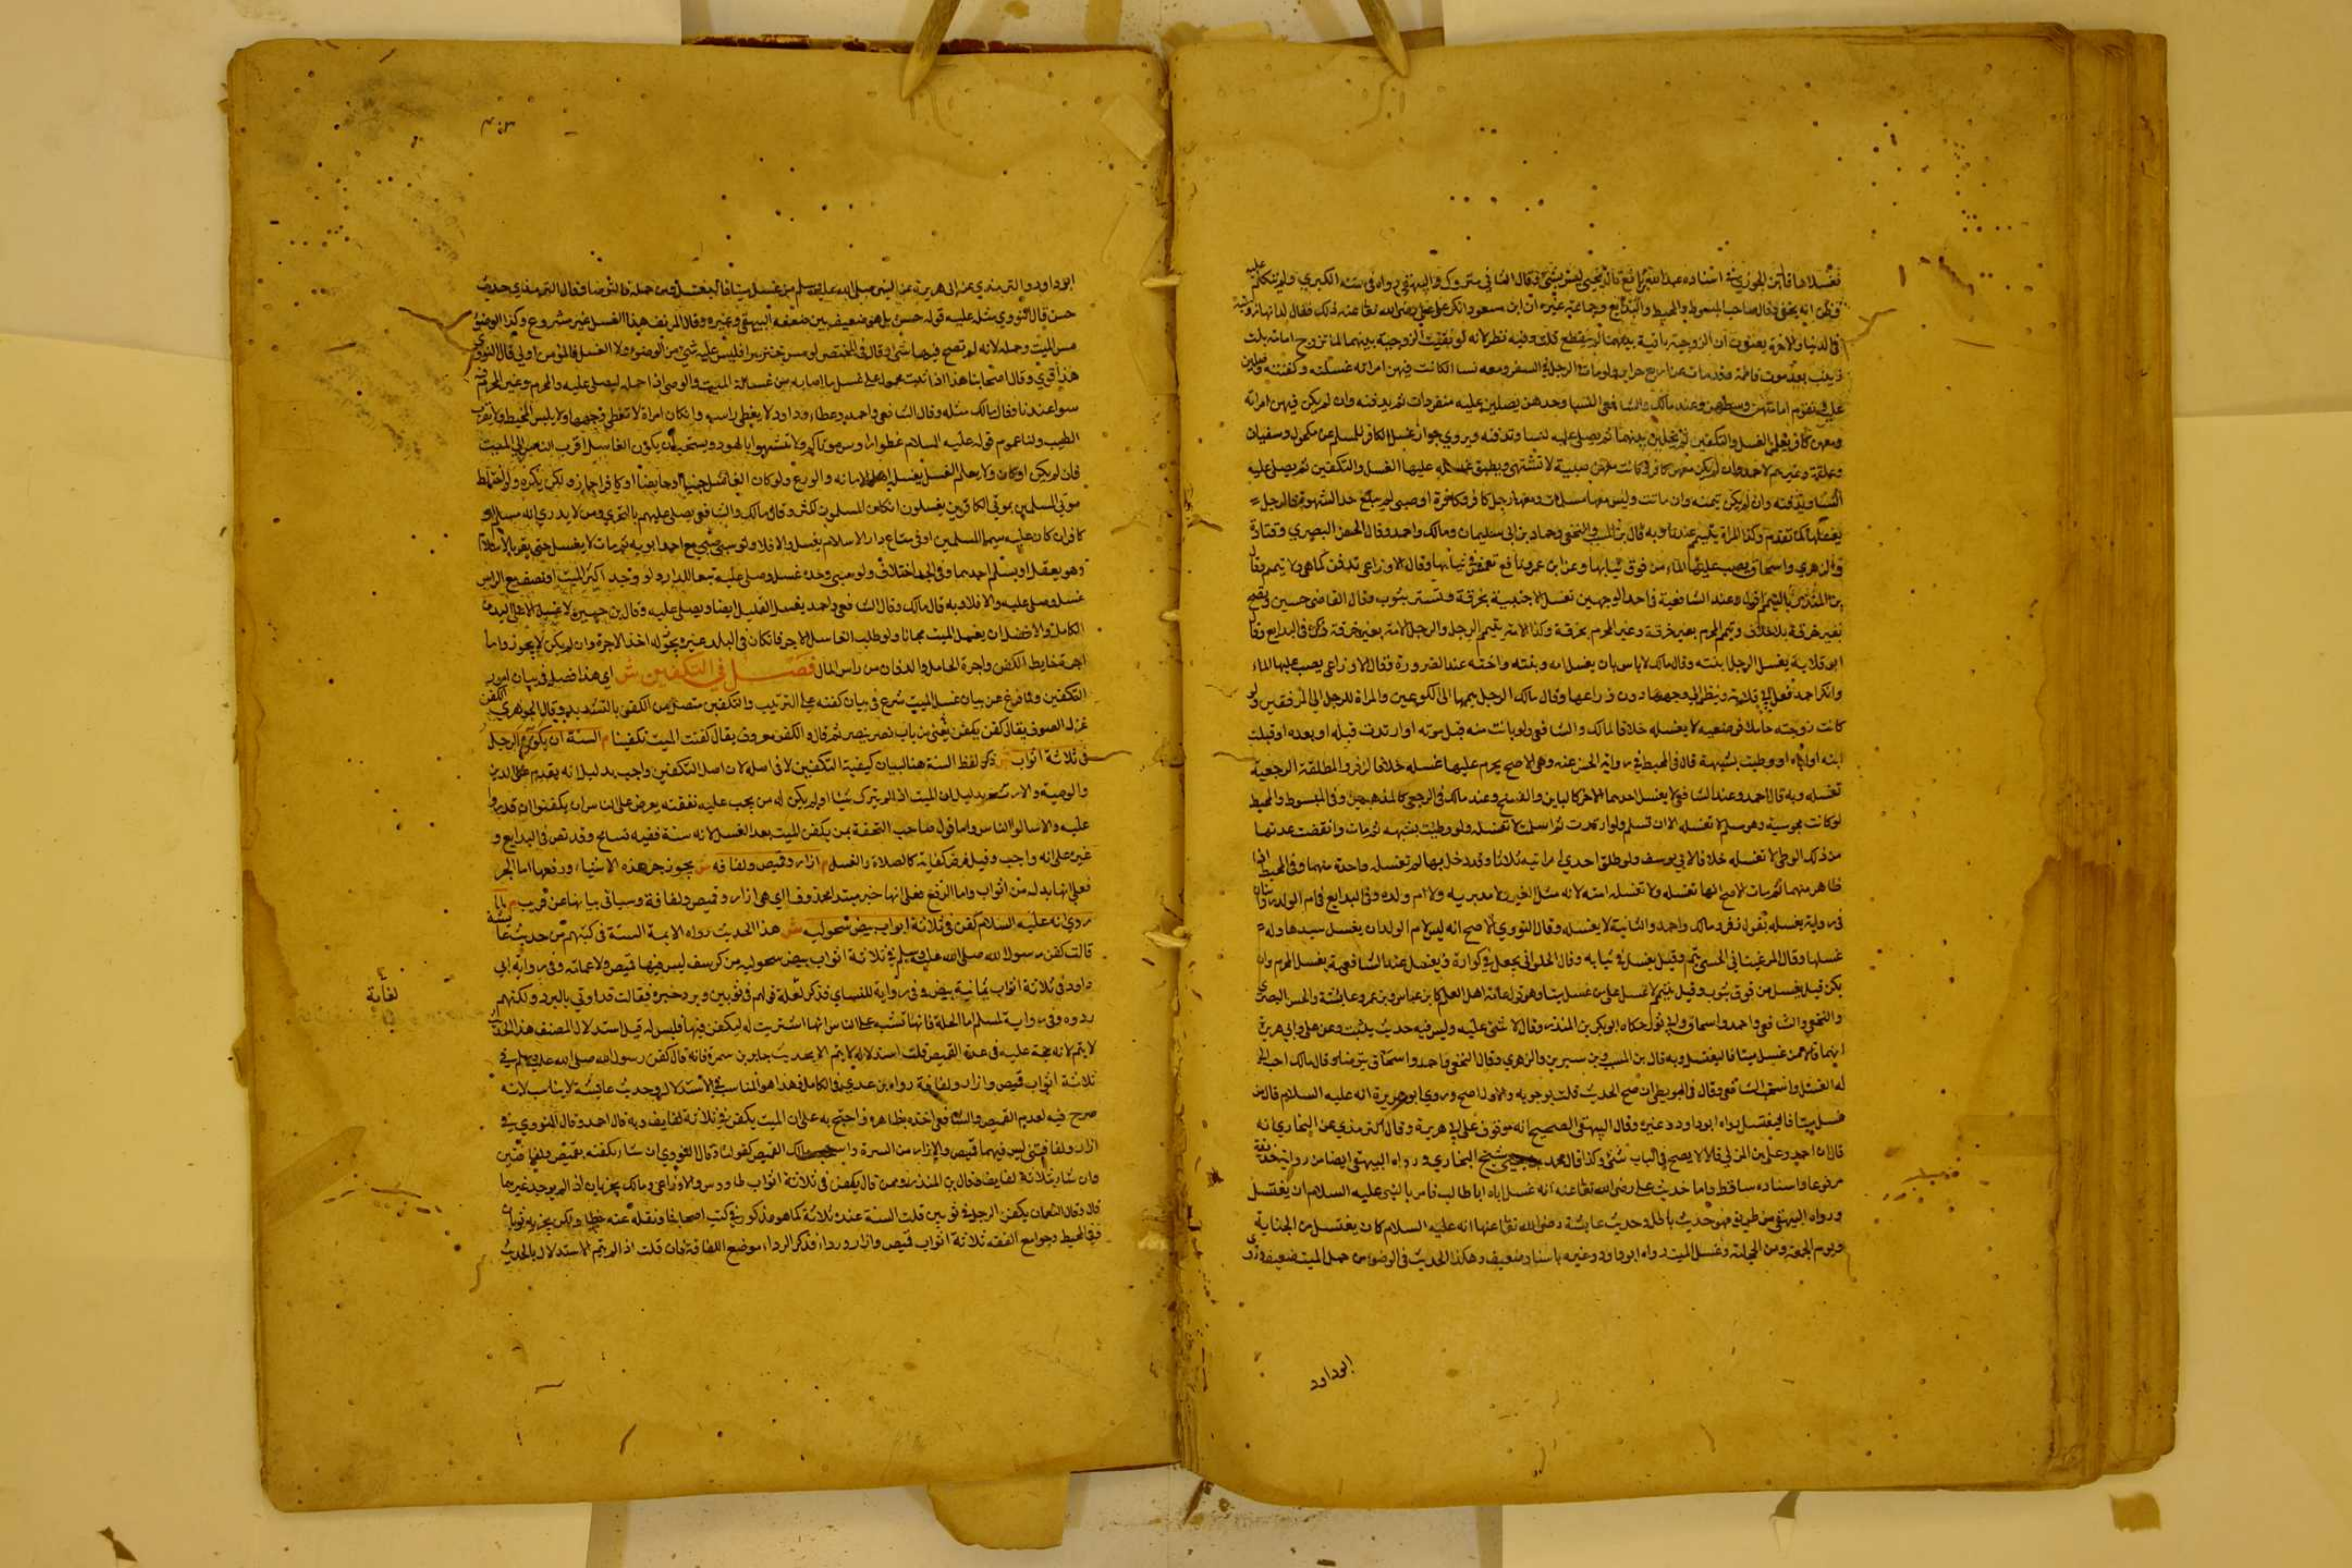 فغسلاها قال ابن الجوزي في اسناده عبد الله بن نافع قال يحيى ليس بشئ وقال النسائي متروك والبيهقي رواه في سننه الكبرى ولم يتكلم عليه
وظن انه يخفى وقال صاحب المبسوط والمحيط والبدايع وجماعة غيره ان ابن مسعود انكر على علي رضي الله تعالى عنه ذلك فقال له انها زوجته
في الدنيا والآخرة يعنون ان الزوجية باقية بينهما لم تنقطع قلت وفيه نظر لانه لو بقيت الزوجية بينهما لما تزوج امامة بنت
زينب بعد موت فاطمة وقد مات عن اربع حراير ولو مات الرجل في السفر ومعه نسا ان كانت فيهن امراته غسلته وكفنته وصلين
عليه تقوم امامتهن وسطهن وعند مالك والشافعي النسا وحدهن يصلين عليه منفردات ثم يدفنه وان لم يكن فيهن امراته
ومعهن كافر يعلم الغسل والتكفين ثم يخلين بينهما ثم يصلي عليه النسا وتدفنه ويروى جواز غسل الكافر للمسلم عن مكحول وسفيان
وعلقمة وغيرهم لاحد وان لم يكن معهن كافر فان كانت معهن صبية لا تشتهى وتطيق غسله عليها الغسل والتكفين ثم يصلي عليه
النسا وتدفنه وان لم يكن يممنه وان ماتت وليس معها مسلمات ومعها رجل كافر وكافرة او صبي لم يبلغ حد الشهوة فالرجل
يغسلها كما تقدم وكذا المراة تيمم عندنا وبه قال ابن المسيب والنخعي وحماد بن ابي سليمان ومالك واحمد وقال الحسن البصري وقتادة
والزهري واسحاق يصب عليها الماء من فوق ثيابها وعن ابن عمر ونافع تغمس في ثيابها وقال الاوزاعي تدفن كما هي لا تيمم قال
ابن المنذر بالتيمم اقول وعند الشافعية في احد الوجهين تغسل الاجنبية بخرقة وتستر بثوب وقال القاضي حسين
بغير خرقة بلا خلاف ويمم المحرم بغير خرقة وغير المحرم بخرقة وكذا الامة يتيمم الرجل والرجل الامة بغير خرقة ذكره في البدايع وقال
ابو قلابة يغسل الرجل بنته وقال مالك لا باس بان يغسل امه وبنته واخته عند الضرورة وقال الاوزاعي يصب عليها الماء
وانكر احمد فعل ابي قلابة وينظر الى وجهها دون ذراعها وقال مالك الرجل ييممها الى الكوعين والمراة للرجل الى المرفقين ولو
كانت زوجته حاملا فوضعته لا يغسله خلافا لمالك والشافعي ولو بانت منه قبل موته او ارتدت قبله او بعده او قبلت
ابنه او اباه او وطيت بشبهة قال في المحيط في رواية الحسن عنه وهي الاصح يحرم عليها غسله خلافا لزفر والمطلقة الرجعية
تغسله وبه قال احمد وعند الشافعي لا يغسل احدهما الآخر كالباين والفسخ وعند مالك في الرجعي كالمذهبين وفي المبسوط والمحيط
لو كانت مجوسية وهو مسلم لا تغسله الا ان تسلم ولو ارتدت ثم اسلمت لا تغسله ولو وطئت بشبهة ثم مات وانقضت عدتها
من ذلك الوطئ لا تغسله خلافا لابي يوسف ولو طلق احدى امراتيه ثلاثا وقد دخل بهما لم تغسله واحدة منهما وفي المحيط
ظاهر منهما ثم مات الاصح انها تغسله ولا تغسله امته لانه مثل الغير ولا مدبرته ولا ام ولده وفي البدايع في ام الولد روايتان
في رواية يغسله بقول زفر ومالك واحمد والثانية لا يغسله وقال النووي الاصح انه ليس لام الولد ان يغسل سيدها وله
غسلها وقال المرغيناني الخنثى ييمم وقيل يغسل في ثيابه وقال الحلواني يجعل في كوارة ويغسل عند الشافعية يغسل المحرم وان لم
يكن قيل يغسل من فوق ثوب وقيل ييمم لا غسل على من غسل ميتا وهو قول عامة اهل العلم كابن عباس وابن عمر وعايشة والحسن البصري
والنخعي والشافعي واحمد واسحاق وابي ثور حكاه ابو بكر بن المنذر وقال لا شئ عليه وليس فيه حديث يثبت وعن علي وابي هريرة
انهما قالا من غسل ميتا فليغتسل وبه قال ابن المسيب وابن سيرين والزهري وقال النخعي واحمد واسحاق يتوضا وقال مالك احب الي
له الغسل واستحبه الشافعي وقال في البويطي ان صح الحديث قلت بوجوبه والاول اصح وروي ابو هريرة انه عليه السلام قال من
غسل ميتا فليغتسل رواه ابو داود وغيره وقال البيهقي الصحيح انه موقوف على ابي هريرة وقال الترمذي عن البخاري انه
قال ان احمد وعلي بن المديني قالا لا يصح في الباب شئ وكذا قال محمد بن يحيى شيخ البخاري ورواه البيهقي ايضا من رواية حذيفة
مرفوعا واسناده ساقط واما حديث علي رضي الله تعالى عنه انه غسل اباه ابا طالب فامره النبي عليه السلام ان يغتسل
ورواه البيهقي من طريق فهو حديث باطل وحديث عايشة رضي الله تعالى عنها انه عليه السلام كان يغتسل من الجنابة
ويوم الجمعة ومن الحجامة وغسل الميت رواه ابو داود وغيره باسناد ضعيف وهكذا الحديث في الوضوء من حمل الميت ضعيف وروى
ابو داود
ابو داود والترمذي عن ابي هريرة عن النبي صلى الله عليه وسلم من غسل ميتا فليغتسل ومن حمله فليتوضا وقال الترمذي حديث
حسن قال النووي مثله عليه قوله حسن بل هو ضعيف بين ضعفه البيهقي وغيره وقال المزني هذا الغسل غير مشروع وكذا الوضوء
من مس الميت وحمله لانه لم تصح فيهما شئ وقال في المختصر لو مس خنزيرا فليس عليه شئ من الوضوء ولا الغسل فالمؤمن اولى قال النووي
هذا قوي وقال اصحابنا هذا اذا ثبت محمول على غسل ما اصابه من غسالة الميت والوضوء اذا حمله ليصلي عليه والمحرم وغير المحرم فيه
سوا عندنا وقال مالك مثله وقال الشافعي واحمد وعطاء وداود لا يغطى راسه وان كان امراة لا تغطى وجهها ولا يلبس المخيط ولا يقرب
الطيب ولنا عموم قوله عليه السلام غطوا رؤس موتاكم ولا تشبهوا باليهود ويستحب ان يكون الغاسل اقرب الناس الى الميت
فان لم يكن او كان ولا يعلم الغسل يغسل اهل الامانة والورع ولو كان الغاسل جنبا او حايضا او كافرا جاز ولكن يكره ولو اختلط
موتى المسلمين بموتى الكافرين يغسلون ان كان المسلمون اكثر وقال مالك والشافعي يصلى عليهم بالتحري ومن لا يدرى انه مسلم او
كافر ان كان عليه سيما المسلمين او في بقاع دار الاسلام يغسل والا فلا ولو سبي صبي مع احد ابويه ثم مات لا يغسل حتى يقر بالاسلام
وهو يعقل او يسلم احدهما وفي الجد اختلاف ولو سبي وحده غسل وصلي عليه تبعا للدار ولو وجد اكثر الميت او نصفه مع الراس
غسل وصلي عليه والا فلا وبه قال مالك وقال الشافعي واحمد يغسل القليل ايضا ويصلى عليه
الكامل والافضل ان يغسل الميت مجانا ولو طلب الغاسل الاجر فان كان في البلد غيره يجوز له اخذ الاجرة وان لم يكن لا يجوز واما
اجرة خايط الكفن واجرة الحامل والدفان من راس المال فصل في التكفين ش اي هذا فصل في بيان امور
التكفين ولما فرغ عن بيان غسل الميت شرع في بيان كفنه على الترتيب والتكفين متصل من الكفن بالتشديد وقال الجوهري الكفن
غزل الصوف يقال كفن يكفن يعني من باب نصر ينصر ثم قال والكفن معروف يقال كفنت الميت تكفينا م السنة ان يكفن الرجل
في ثلاثة اثواب ش ذكر لفظ السنة هنا لبيان كيفية التكفين لا في اصله لان اصل التكفين واجب بدليل انه يقدم على الدين
والوصية والارث بدليل ان الميت اذا لم يترك شيئا ولم يكن له من يجب عليه نفقته يعرض على الناس ان يكفنوا ان قدروا
عليه والا سالوا الناس واما قول صاحب التحفة بمن يكفن الميت بعد الغسل لانه سنة ففيه تسامح وقد نص في البدايع و
غيره على انه واجب وقيل فرض كفاية كالصلاة والغسل م ازار وقميص ولفافة ش يجوز جر هذه الاشياء ورفعها اما الجر
فعلى انها بدل من اثواب واما الرفع فعلى انها خبر مبتدا محذوف اي هي ازار وقميص ولفافة وسياتي بيانها عن قريب م لما
روي انه عليه السلام كفن في ثلاثة اثواب بيض سحولية ش هذا الحديث رواه الايمة الستة في كتبهم من حديث عايشة
قالت كفن رسول الله صلى الله عليه وسلم في ثلاثة اثواب بيض سحولية من كرسف ليس فيها قميص ولا عمامة وفي رواية ابي
داود في ثلاثة اثواب يمانية بيض وفي رواية للنساي فذكر لعايشة قولهم في ثوبين وبرد حبرة فقالت قد اوتي بالبرد ولكنهم
ردوه وفي رواية لمسلم اما الحلة فانها شبه على الناس انها اشتريت له ليكفن فيها فليس له قيل استدلال المصنف هذا الحديث
لا يتم لانه حجة عليه في عدة القميص قلت استدلاله لا يتم الا بحديث جابر بن سمرة فانه قال كفن رسول الله صلى الله عليه وسلم في
ثلاثة اثواب قميص وازار ولفافة رواه ابن عدي في الكامل فهذا هو المناسب في الاستدلال وحديث عايشة لا يناسب لانه
صرح فيه لعدم القميص والشافعي اخذ بظاهره واحتج به على ان الميت يكفن في ثلاثة لفايف وبه قال احمد وقال النووي في
ازار ولفافتين ليس فيهما قميص والازار من السرة واستحب مالك القميص كقولنا وقال النووي ان شا ان يكفنه بقميص ولفافتين
وان شا بثلاثة لفايف فقال ابن المنذر وممن قال يكفن في ثلاثة اثواب طاووس والاوزاعي ومالك يجزيان اذا لم يوجد غيرهما
قال وقال النعمان يكفن الرجل في ثوبين قلت السنة عنده ثلاثة كما هو مذكور في كتب اصحابنا ونقله عنه خطا ولكن يجزيه ثوبان
وفي المحيط وجوامع الفقه ثلاثة اثواب قميص وازار ورداء فذكر الرداء موضع اللفافة فان قلت اذا لم يتم الاستدلال بالحديث
لغاية